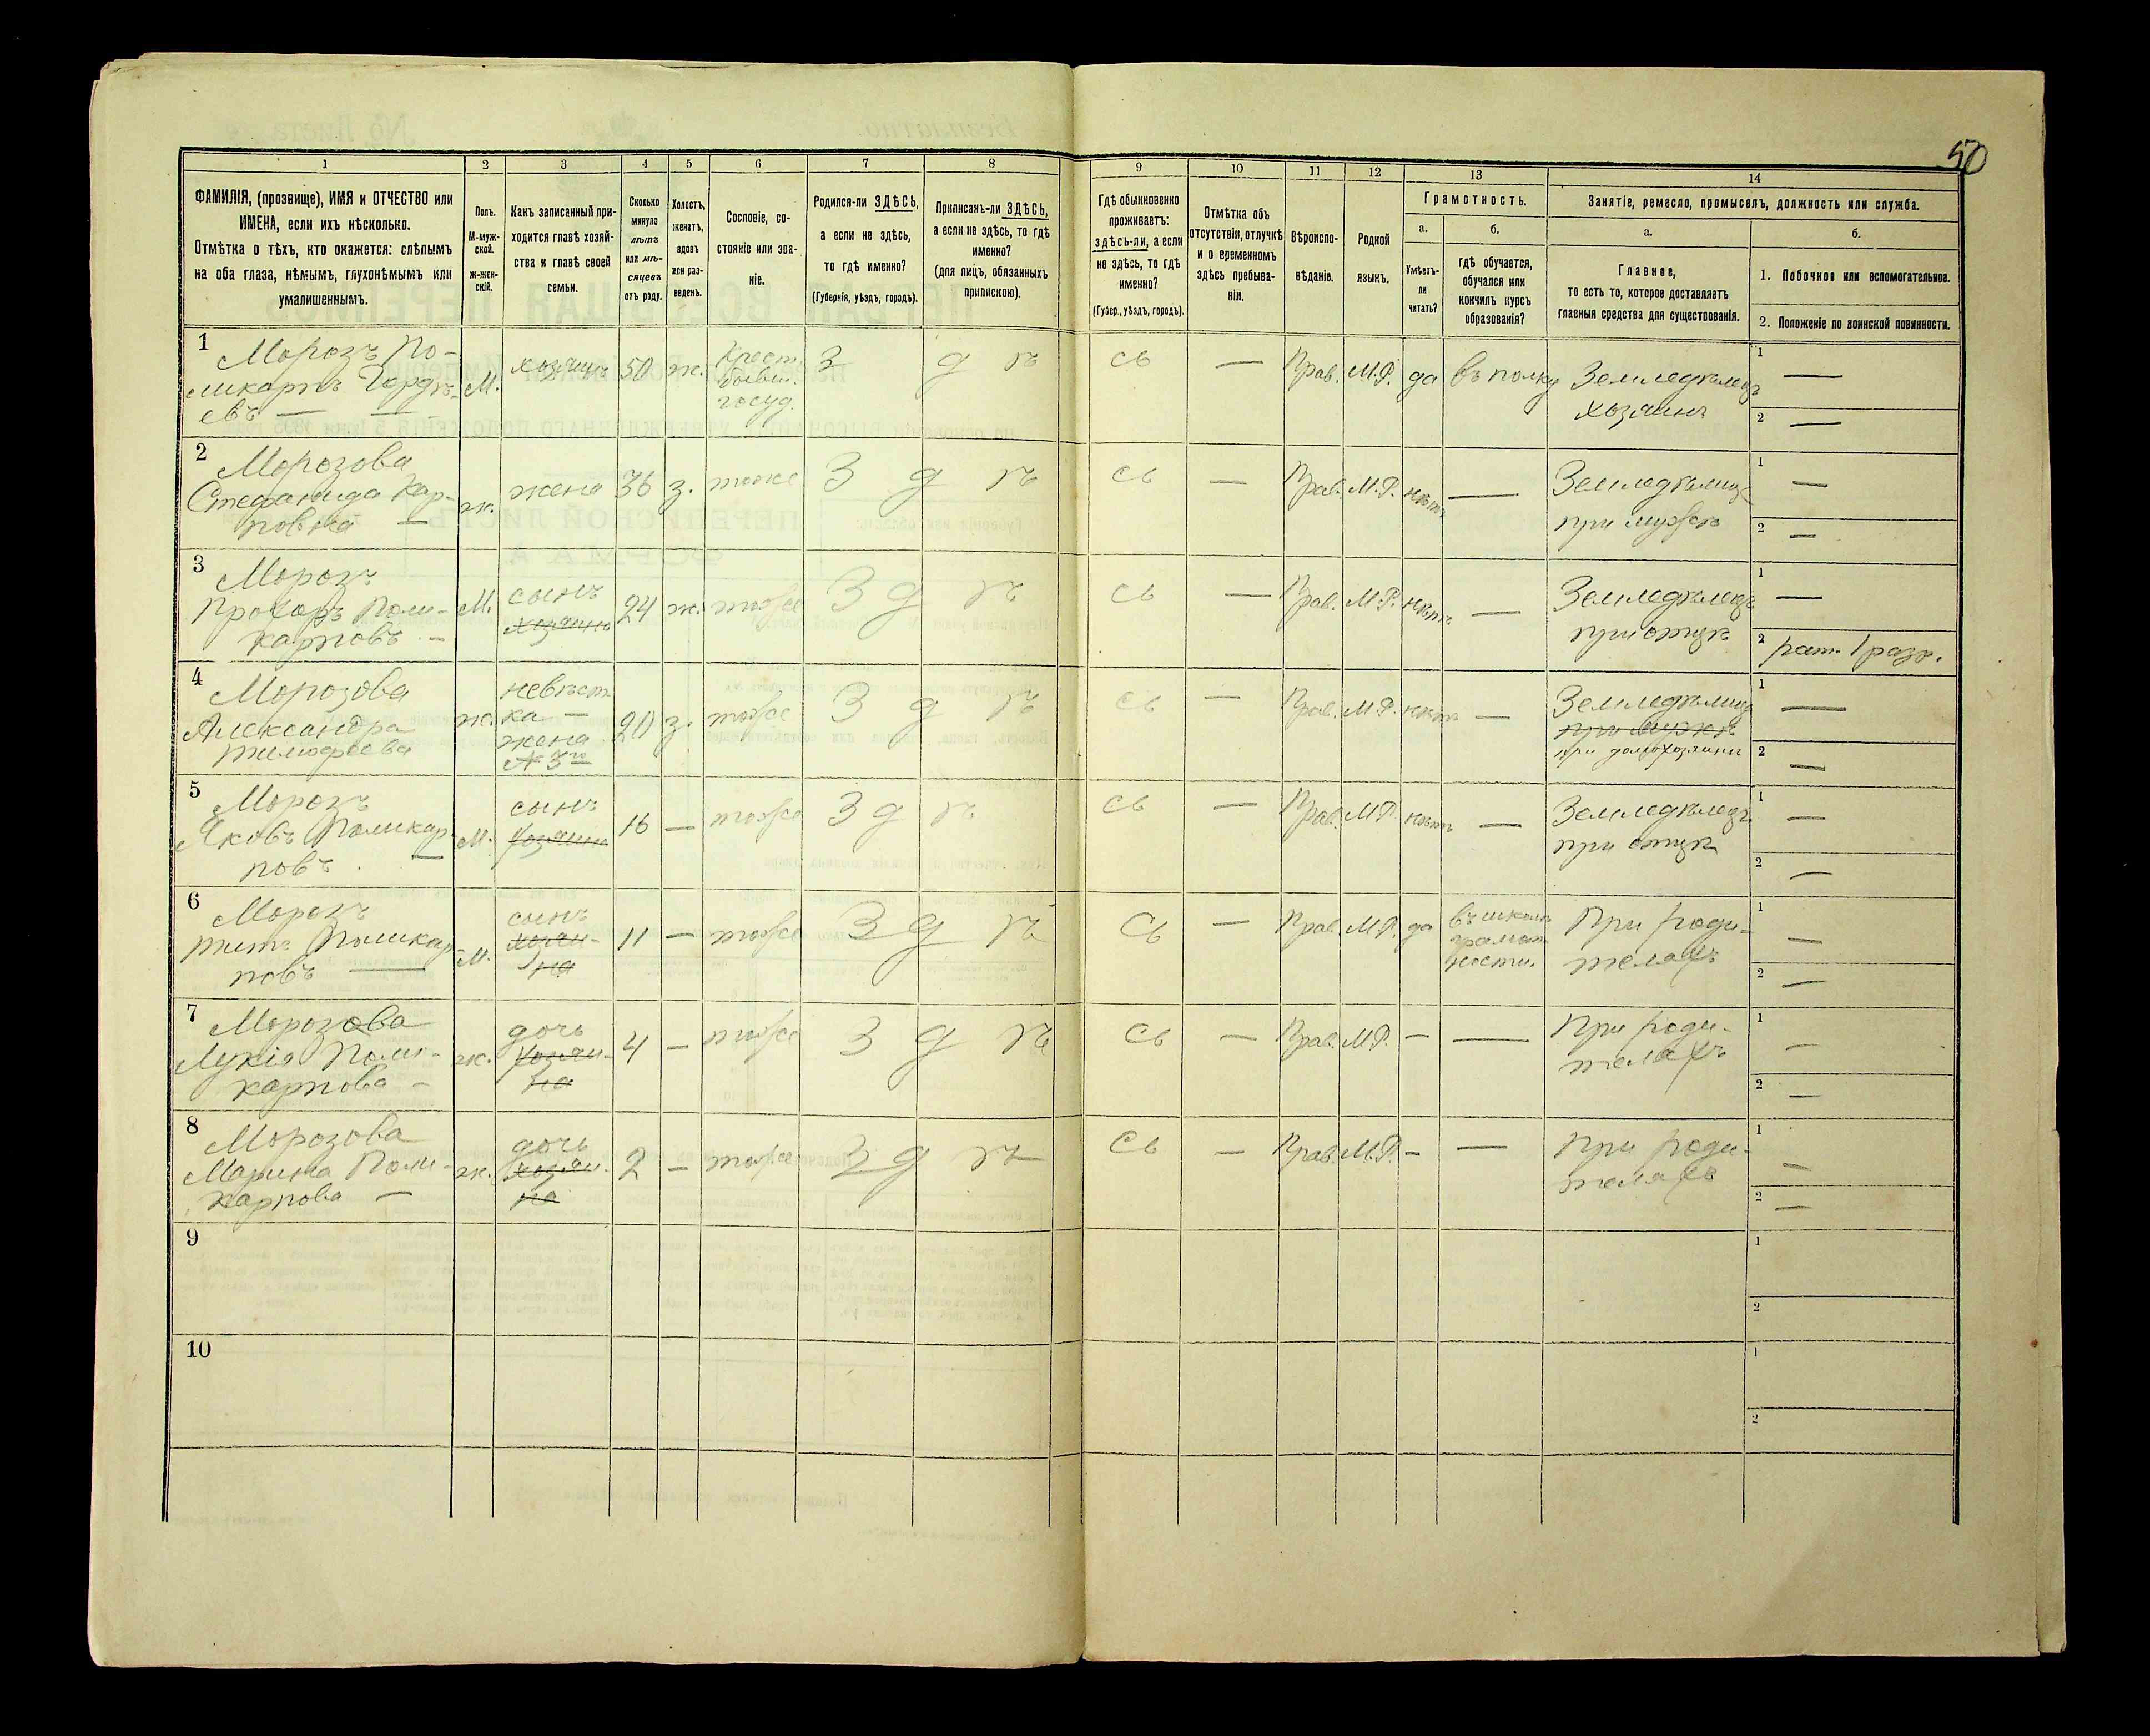 50
1 2 3 4 5 6 7 8 9 10 11 12 13 14
ФАМИЛІЯ, (прозвище), ИМЯ и ОТЧЕСТВО или
ИМЕНА, если ихъ нѣсколько.
Отмѣтка о тѣхъ, кто окажется: слѣпымъ
на оба глаза, нѣмымъ, глухонѣмымъ или
умалишеннымъ.
Полъ.
М-муж-
ской.
ж-жен-
скій.
Какъ записанный при-
ходится главѣ хозяй-
ства и главѣ своей
семьи.
Сколько
минуло
лѣтъ
или мѣ-
сяцевъ
отъ роду.
Холостъ,
женатъ,
вдовъ
или раз-
веденъ.
Сословіе, со-
стояніе или зва-
ніе.
Родился-ли ЗДѢСЬ,
а если не здѣсь,
то гдѣ именно?
(Губернія, уѣздъ, городъ).
Приписанъ-ли ЗДѢСЬ,
а если не здѣсь, то гдѣ
именно?
(для лицъ, обязанныхъ
припискою).
Гдѣ обыкновенно
проживаетъ:
здѣсь-ли, а если
не здѣсь, то гдѣ
именно?
(Губер., уѣздъ, городъ).
Отмѣтка объ
отсутствіи, отлучкѣ
и о временномъ
здѣсь пребыва-
ніи.
Вѣроиспо-
вѣданіе.
Родной
языкъ.
Грамотность.
а.
Умѣетъ-
ли
читать?
б.
гдѣ обучается,
обучался или
кончилъ курсъ
образованія?
Занятіе, ремесло, промыселъ, должность или служба.
а.
Главное,
то есть то, которое доставляетъ
главныя средства для существованія.
б.
1. Побочное или вспомогательное.
2. Положеніе по воинской повинности.
1
Морозъ По-
ликарпъ Гордѣ-
евъ —
М.
хозяинъ
50
ж.
Крест.
бывш.
госуд.
З д ѣ сь
—
Прав.
М.Р.
да
въ полку
Земледѣлецъ
хозяинъ
1 —
2 —
2
Морозова
Стефанида Кар-
повна —
ж.
жена
36
з.
тоже
З д ѣ сь
—
Прав.
М.Р.
нѣтъ
—
Земледѣлица
при мужѣ
1 —
2 —
3
Морозъ
Прохоръ Поли-
карповъ —
М.
сынъ
хозяина
24
ж.
тоже
З д ѣ сь
—
Прав.
М.Р.
нѣтъ
—
Земледѣлецъ
при отцѣ
1 —
2 рат. 1 разр.
4
Морозова
Александра
Тимофеева
ж.
невѣст
ка —
жена
№ 3го
20
з.
тоже
З д ѣ сь
—
Прав.
М.Р.
нѣтъ
—
Земледѣлица
при мужѣ
при домохозяинѣ
1 —
2 —
5
Морозъ
Яковъ Поликар-
повъ. —
М.
сынъ
хозяина
16
—
тоже
З д ѣ сь
—
Прав.
М.Р.
нѣтъ
—
Земледѣлецъ
при отцѣ
1 —
2 —
6
Морозъ
Титъ Поликар-
повъ —
М.
сынъ
хозяи-
на
11
—
тоже
З д ѣ сь
—
Прав.
М.Р.
да
въ школѣ
грамот
ности.
При роди-
теляхъ
1 —
2 —
7
Морозова
Лукія Поли-
карпова —
ж.
дочь
хозяи-
на
4
—
тоже
З д ѣ сь
—
Прав.
М.Р.
—
—
При роди-
теляхъ
1 —
2 —
8
Морозова
Марина Поли-
карпова —
ж.
дочь
хозяи-
на
2
—
тоже
З д ѣ сь
—
Прав.
М.Р.
—
—
При роди-
теляхъ
1 —
2 —
9
1
2
10
1
2